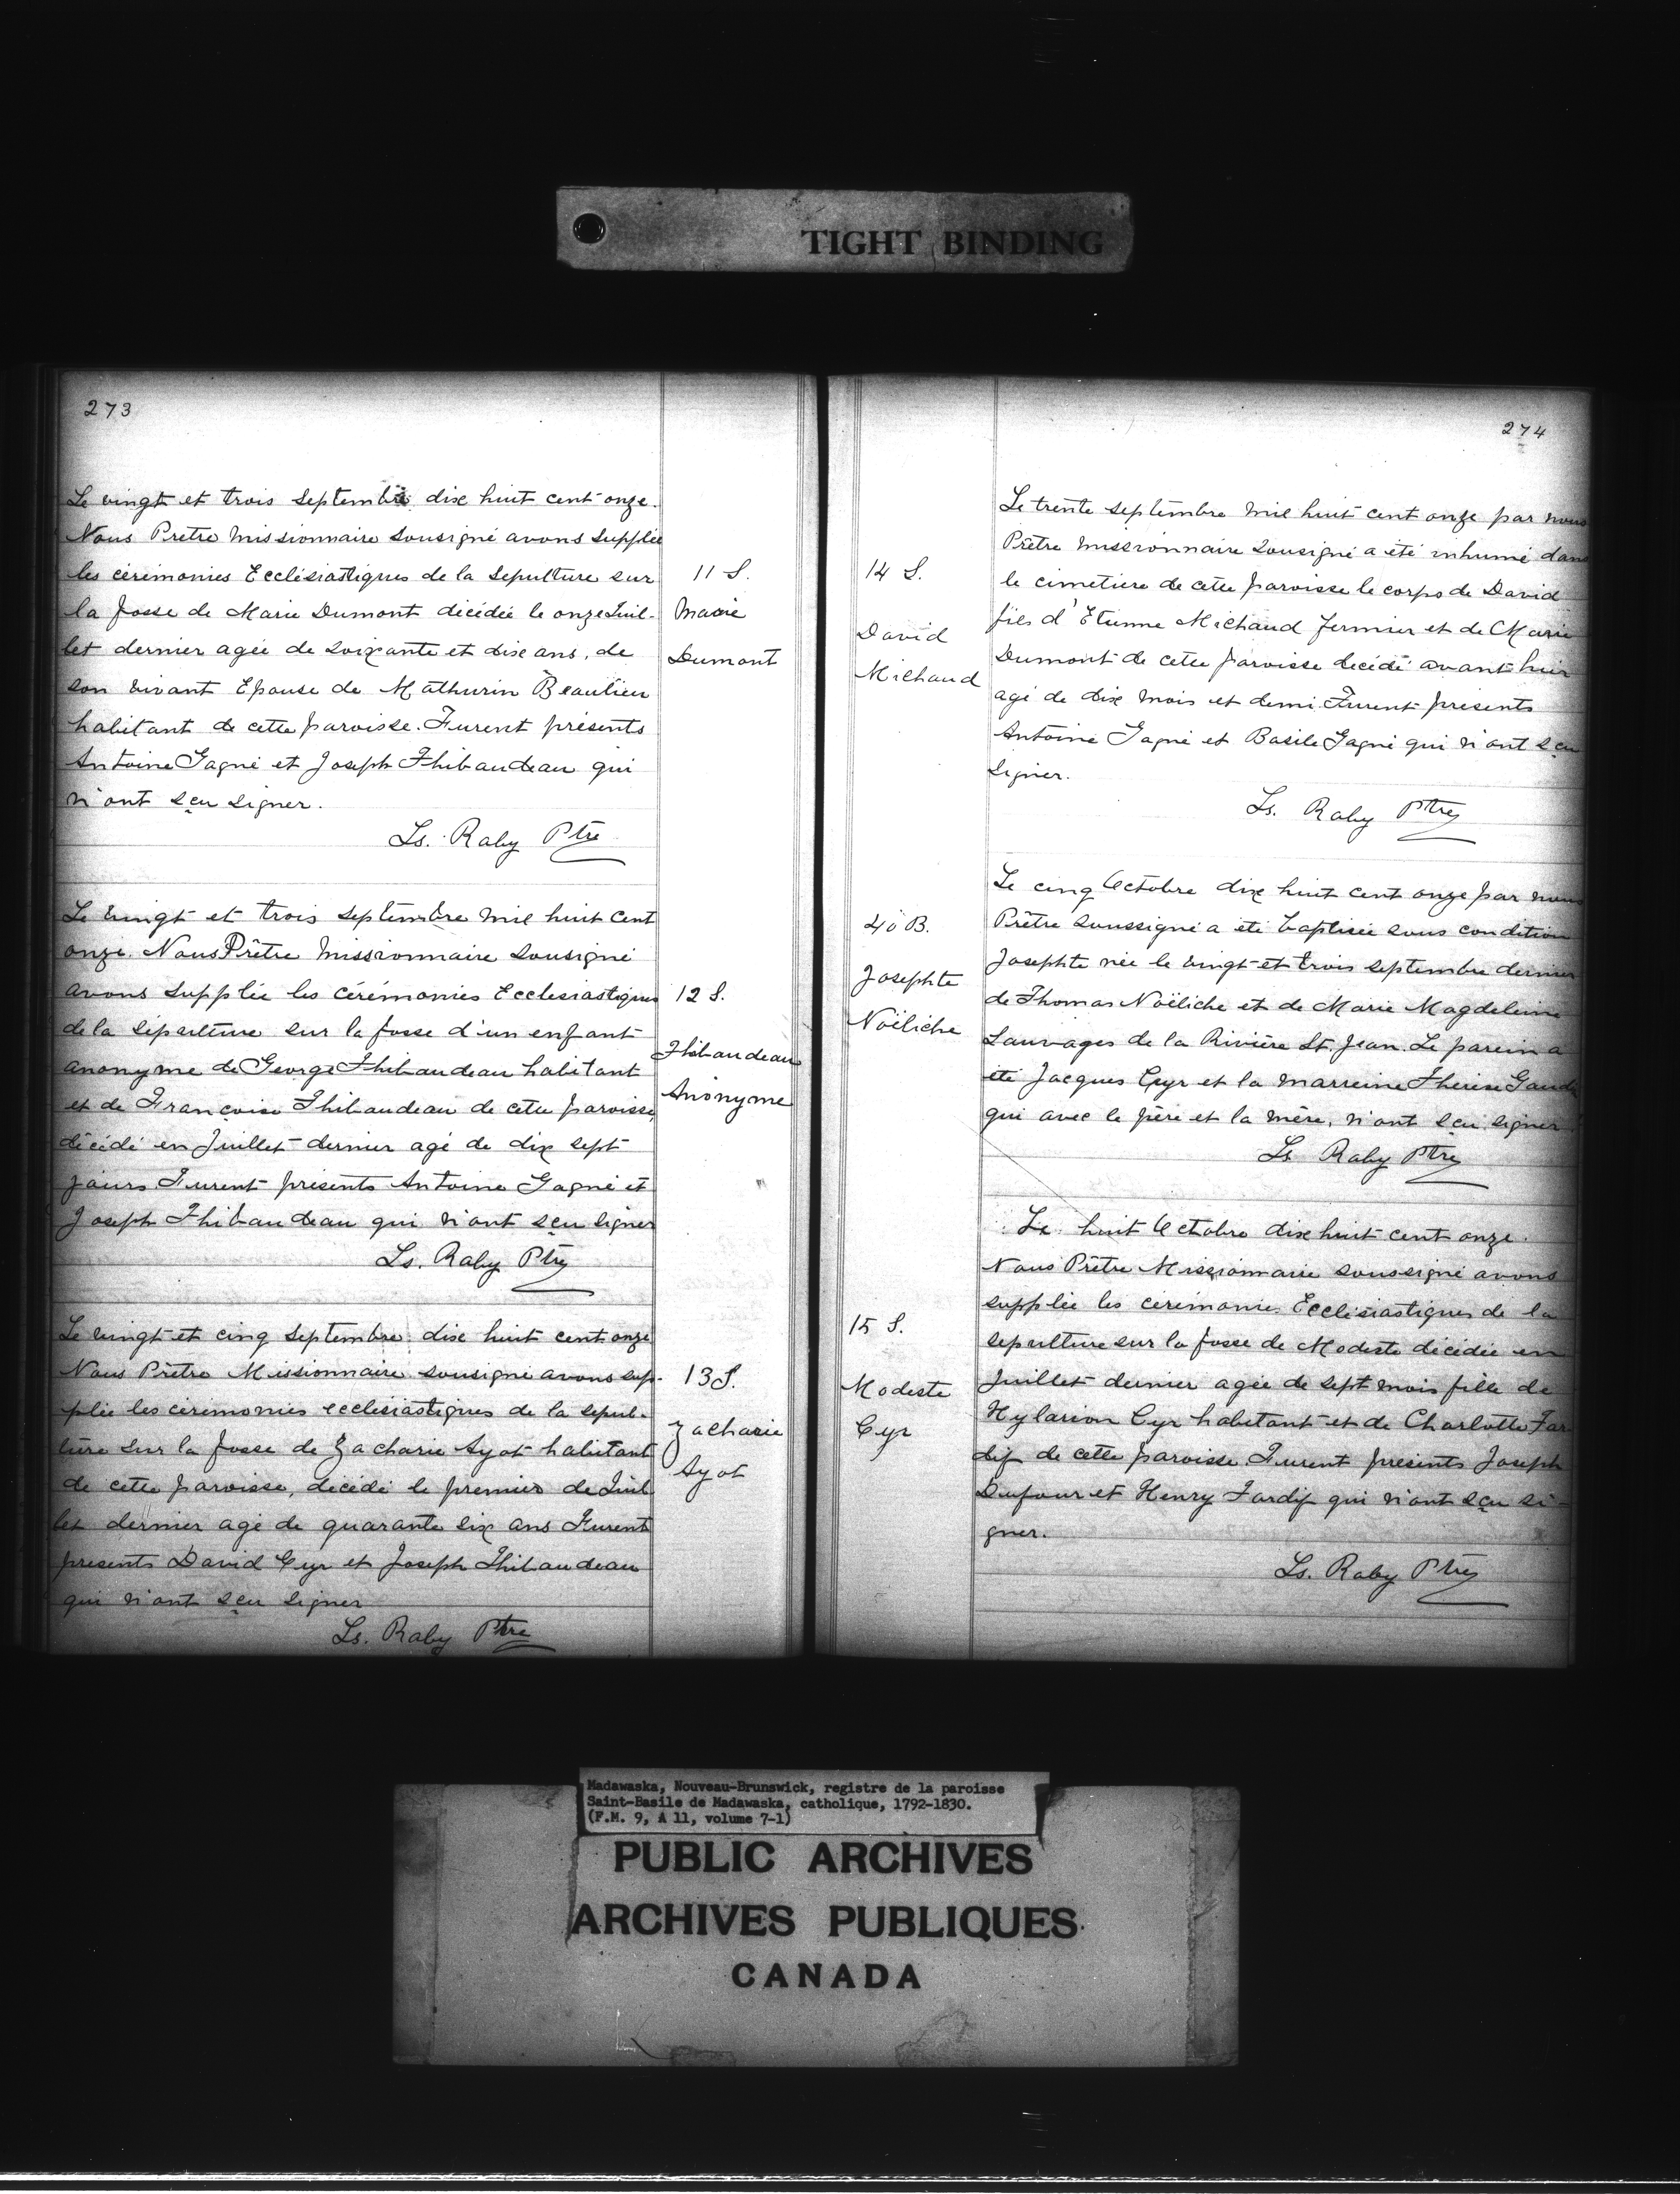 TIGHT BINDING
273
Le vingt et trois Septembre dix huit cent onze.
Nous Prêtre Missionnaire Sousigné avons Supplée
les cérémonies Ecclésiastiques de la Sepulture sur
la fosse de Marie Dumont décédée le onze Juil-
let dernier agée de Soixante et dix ans, de
son vivant Epouse de Mathurin Beaulieu
habitant de cette paroisse. Furent présents
Antoine Gagné et Joseph Thibaudeau qui
n'ont sçu signer.
Ls. Raby Ptre
11 S.
Marie
Dumont
Le vingt et trois Septembre mil huit cent
onze. Nous Prêtre Missionnaire Sousigné
avons Supplée les Cérémonies Ecclesiastiques
de la Sépulture sur la fosse d'un enfant
anonyme de George Thibaudeau habitant
et de Françoise Thibaudeau de cette paroisse,
décédé en Juillet dernier agé de dix sept
jours. Furent présents Antoine Gagné et
Joseph Thibaudeau qui n'ont sçu signer
Ls. Raby Ptre
12 S.
Thibaudeau
Anonyme
Le vingt et cinq Septembre dix huit cent onze
Nous Prêtre Missionnaire sousigné avons sup-
plée les cérémonies ecclésiastiques de la sepul-
ture sur la fosse de Zacharie Ayot habitant
de cette paroisse, décédé le premier de Juil
let dernier agé de quarante six ans Furent
présents David Cyr et Joseph Thibaudeau
qui n'ont sçu signer
Ls. Raby Ptre
13 S.
Zacharie
Ayot
274
Le trente septembre mil huit cent onze par nous
Prêtre missionnaire Sousigné a été inhumé dans
le cimetière de cette paroisse le corps de David
fils d'Etienne Michaud fermier et de Marie
Dumont de cette paroisse décédé avant hier
agé de dix mois et demi. Furent présents
Antoine Gagné et Basile Gagné qui n'ont sçu
signer.
Ls. Raby Ptre
14 S.
David
Michaud
Le cinq Octobre dix huit cent onze par nous
Prêtre Soussigné a été baptisée sous condition
Josephte née le vingt et trois septembre dernier
de Thomas Noëliche et de Marie Magdeleine
Sauvages de la Rivière St. Jean. Le parein a
été Jacques Cyr et la marreine Therèse
qui avec le père et la mère, n'ont sçu signer
Ls Raby Ptre
40 B.
Josephte
Noëliche
Le huit Octobre dix huit cent onze.
Nous Prêtre Missionnaire soussigné avons
supplée les cérémonie Ecclésiastiques de la
sepulture sur la fosse de Modeste décédée en
Juillet dernier agée de sept mois fille de
Hylarion Cyr habitant et de Charlotte Tar
dif de cette paroisse. Furent présents Joseph
Dufour et Henry Tardif qui n'ont sçu si-
gner.
Ls. Raby Ptre
15 S.
Modeste
Cyr
Madawaska, Nouveau-Brunswick, registre de la paroisse
Saint-Basile de Madawaska, catholique, 1792-1830.
(F.M. 9, A 11, volume 7-1)
PUBLIC ARCHIVES
ARCHIVES PUBLIQUES
CANADA